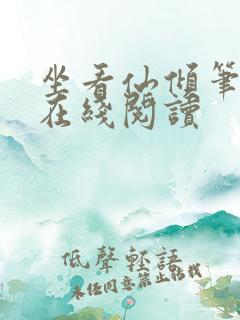 坐看仙傾筆
在綫閱讀
低聲輕語
未经同意禁止转载